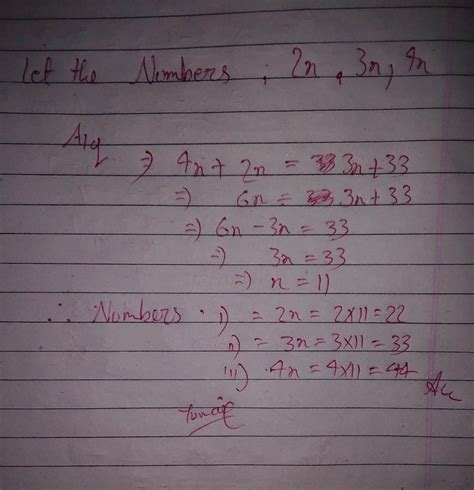 Let the Numbers, 2n, 3n, 4n
A/q
⇒ 4n + 2n = 3n + 33
⇒) 6n = 3n + 33
⇒) 6n - 3n = 33
⇒) 3n = 33
⇒) n = 11
∴ Numbers . i) = 2n = 2×11 = 22
ii) = 3n = 3×11 = 33
iii) 4n = 4×11 = 44